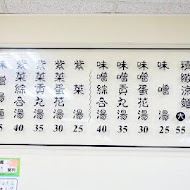 精緻涼麵 大 55
味噌湯 25
味噌蛋花湯 30
味噌貢丸湯 35
味噌綜合湯 40
紫菜湯 25
紫菜蛋花湯 30
紫菜貢丸湯 35
紫菜綜合湯 40